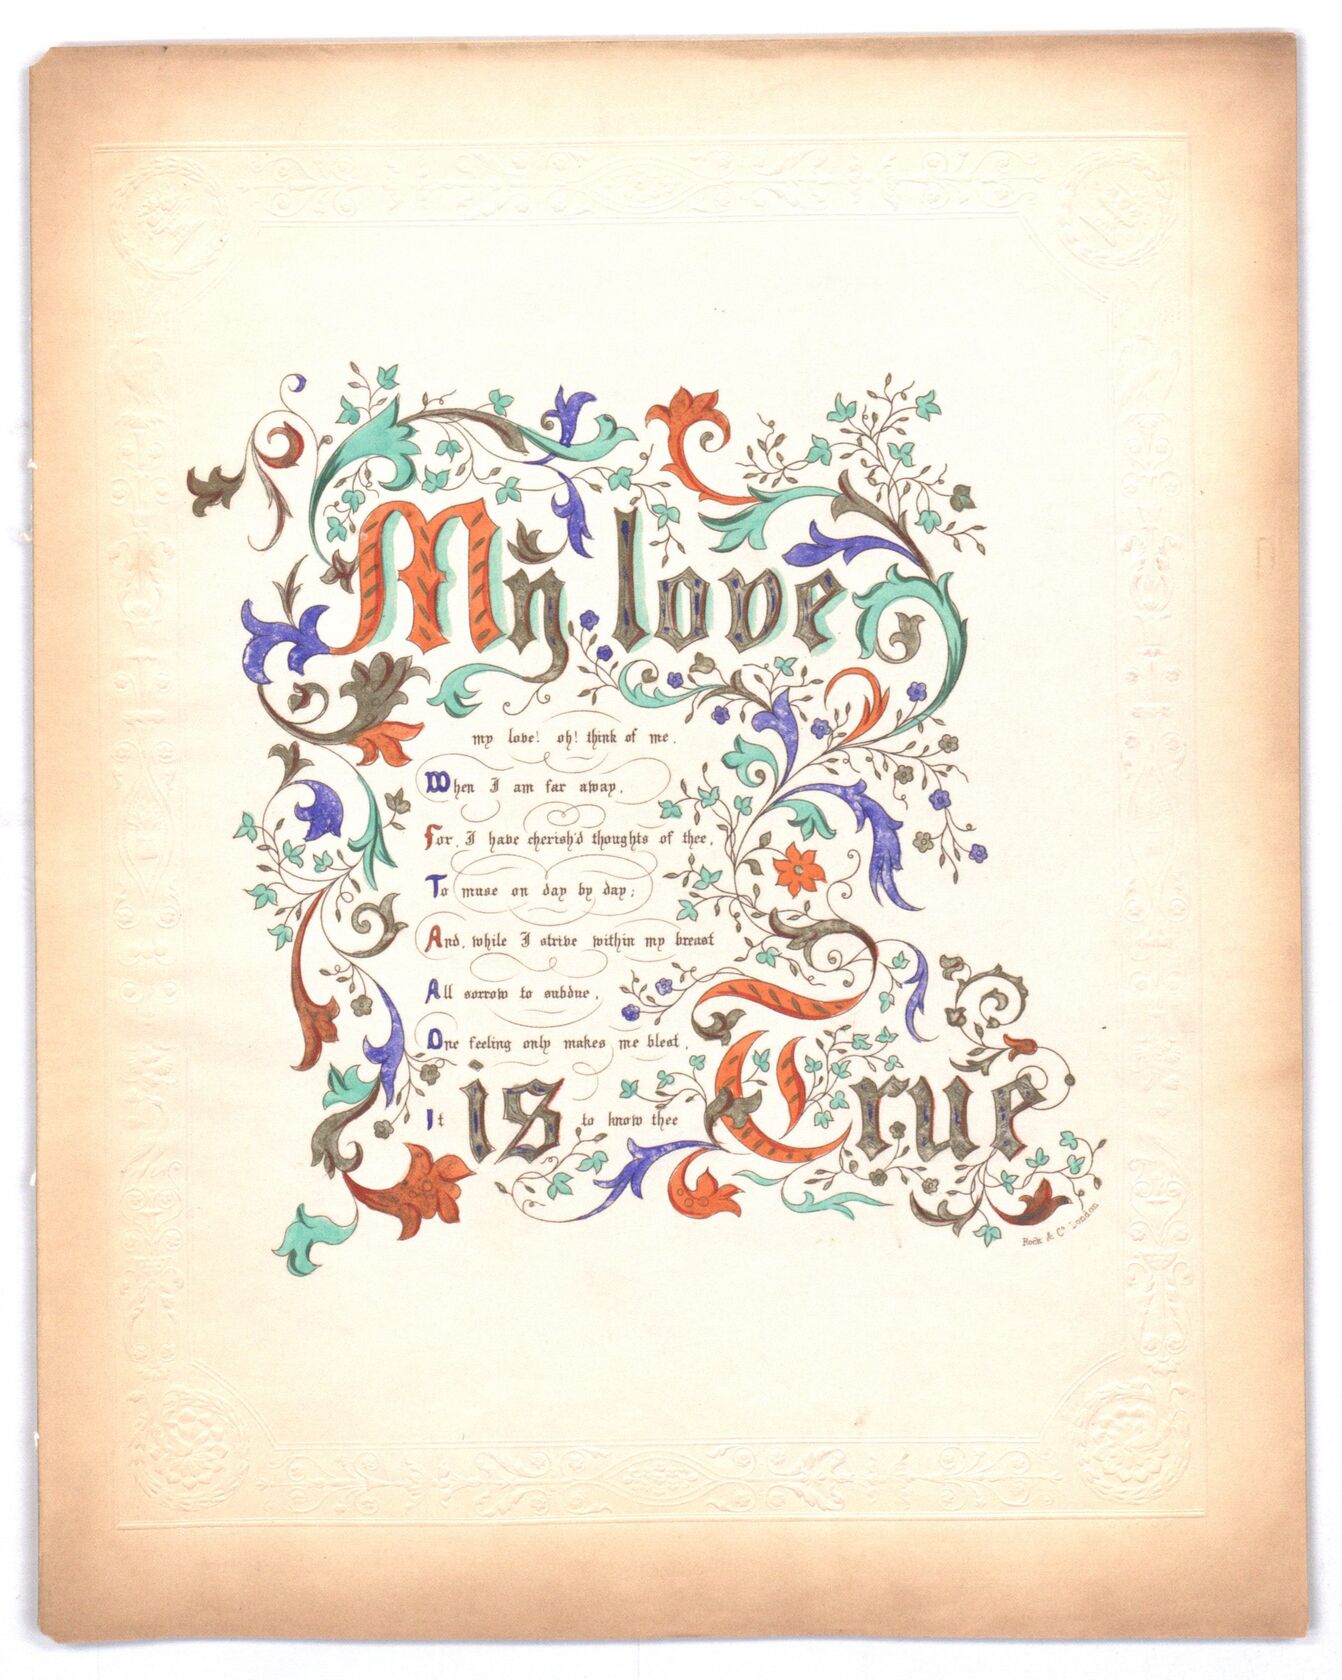 My love
my love! oh! think of me.
When I am far away.
For, I have cherish'd thoughts of thee,
To muse on day by day;
And, while I strive within my breast
All sorrow to subdue,
One feeling only makes me blest,
It is to know thee True
Rock & Co. London